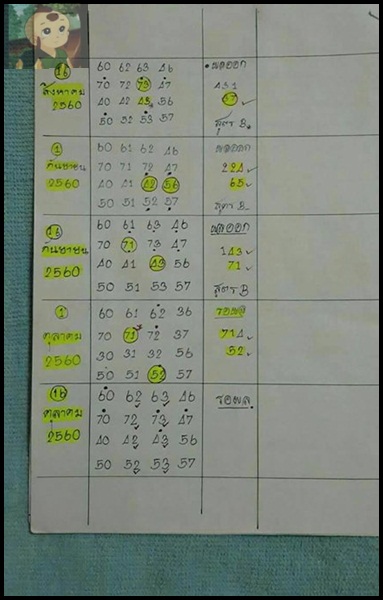 16
สิงหาคม
2560
60 62 63 46
70 72 73 47
40 42 43 56
50 52 53 57
ผลออก
431
สูตร B
1
กันยายน
2560
60 61 62 46
70 71 72 47
40 41 42 56
50 51 52 57
ผลออก
224
65
สูตร B
16
กันยายน
2560
60 61 63 46
70 71 73 47
40 41 43 56
50 51 53 57
ผลออก
143
71
สูตร B
1
ตุลาคม
2560
60 61 62 36
70 71 72 37
30 31 32 56
50 51 52 57
รอผล
714
52
16
ตุลาคม
2560
60 62 63 46
70 72 73 47
40 42 43 56
50 52 53 57
รอผล